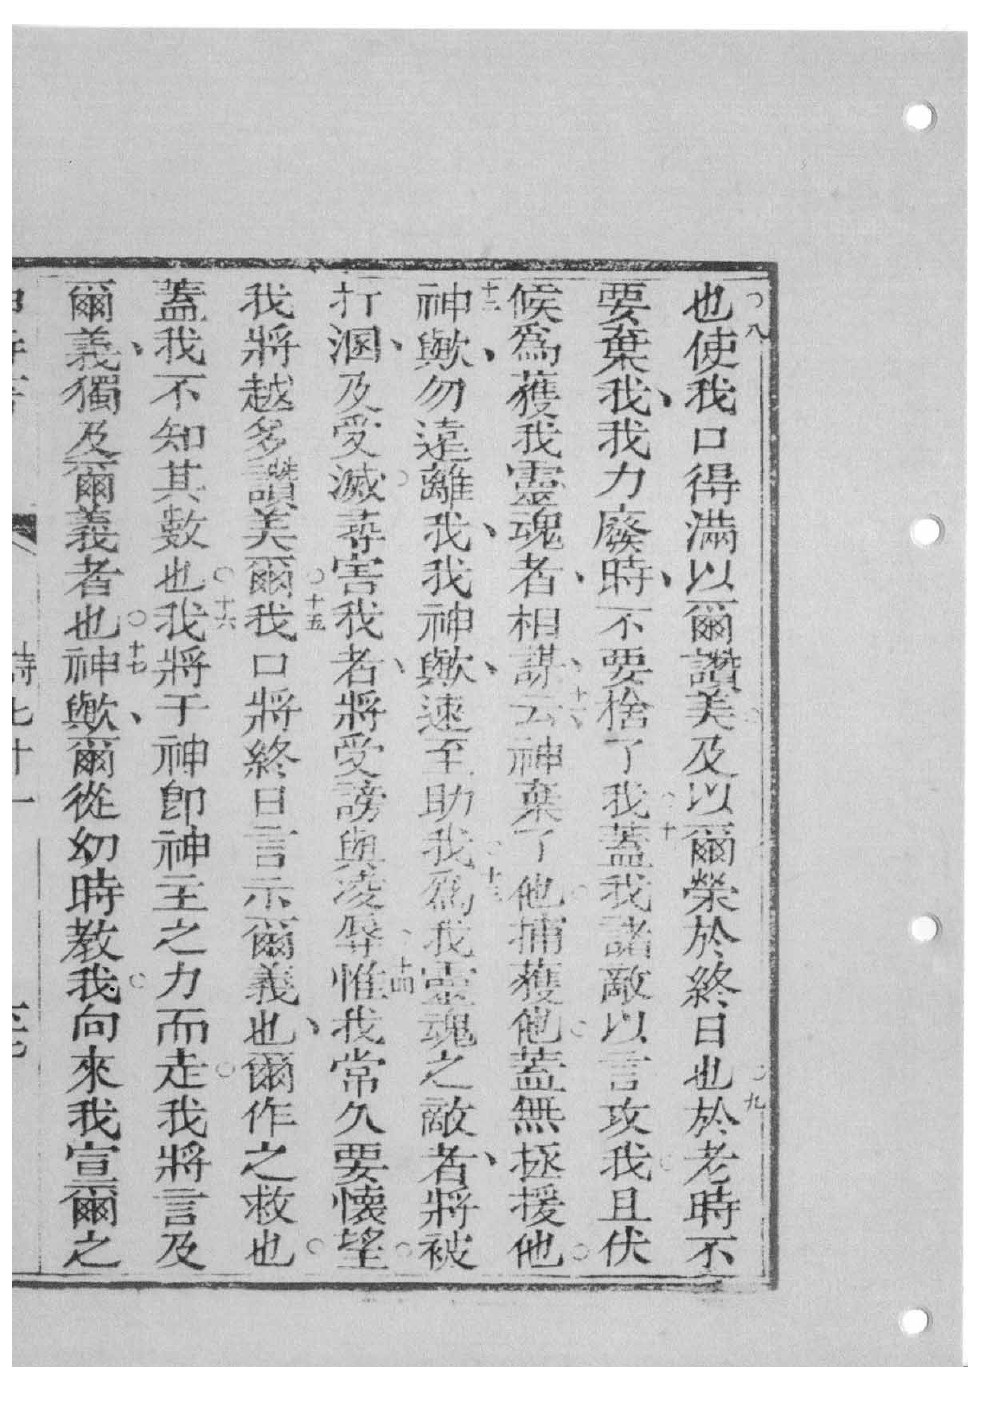 也○八使我口得滿以爾讚美。及以爾榮於終日也○九於老時不
要棄我、我力廢時、不要捨了我○十蓋我諸敵以言攻我。且伏
候爲獲我靈魂者、相謀、○十一云神棄了他。捕獲他。蓋無拯援他。
○十二神歟、勿遠離我、我神歟、速至助我○十三爲我靈魂之敵者、將被
打溷、及受滅。尋害我者、將受謗與凌辱○十四惟我常久要懷望。
我將越多讚美爾○十五我口將終日言示爾義也、爾作之救也。
蓋我不知其數也○十六我將于神卽神主之力而走。我將言及
爾義、獨及爾義者也○十七神歟、爾從幼時教我。向來我宣爾之
詩七十一